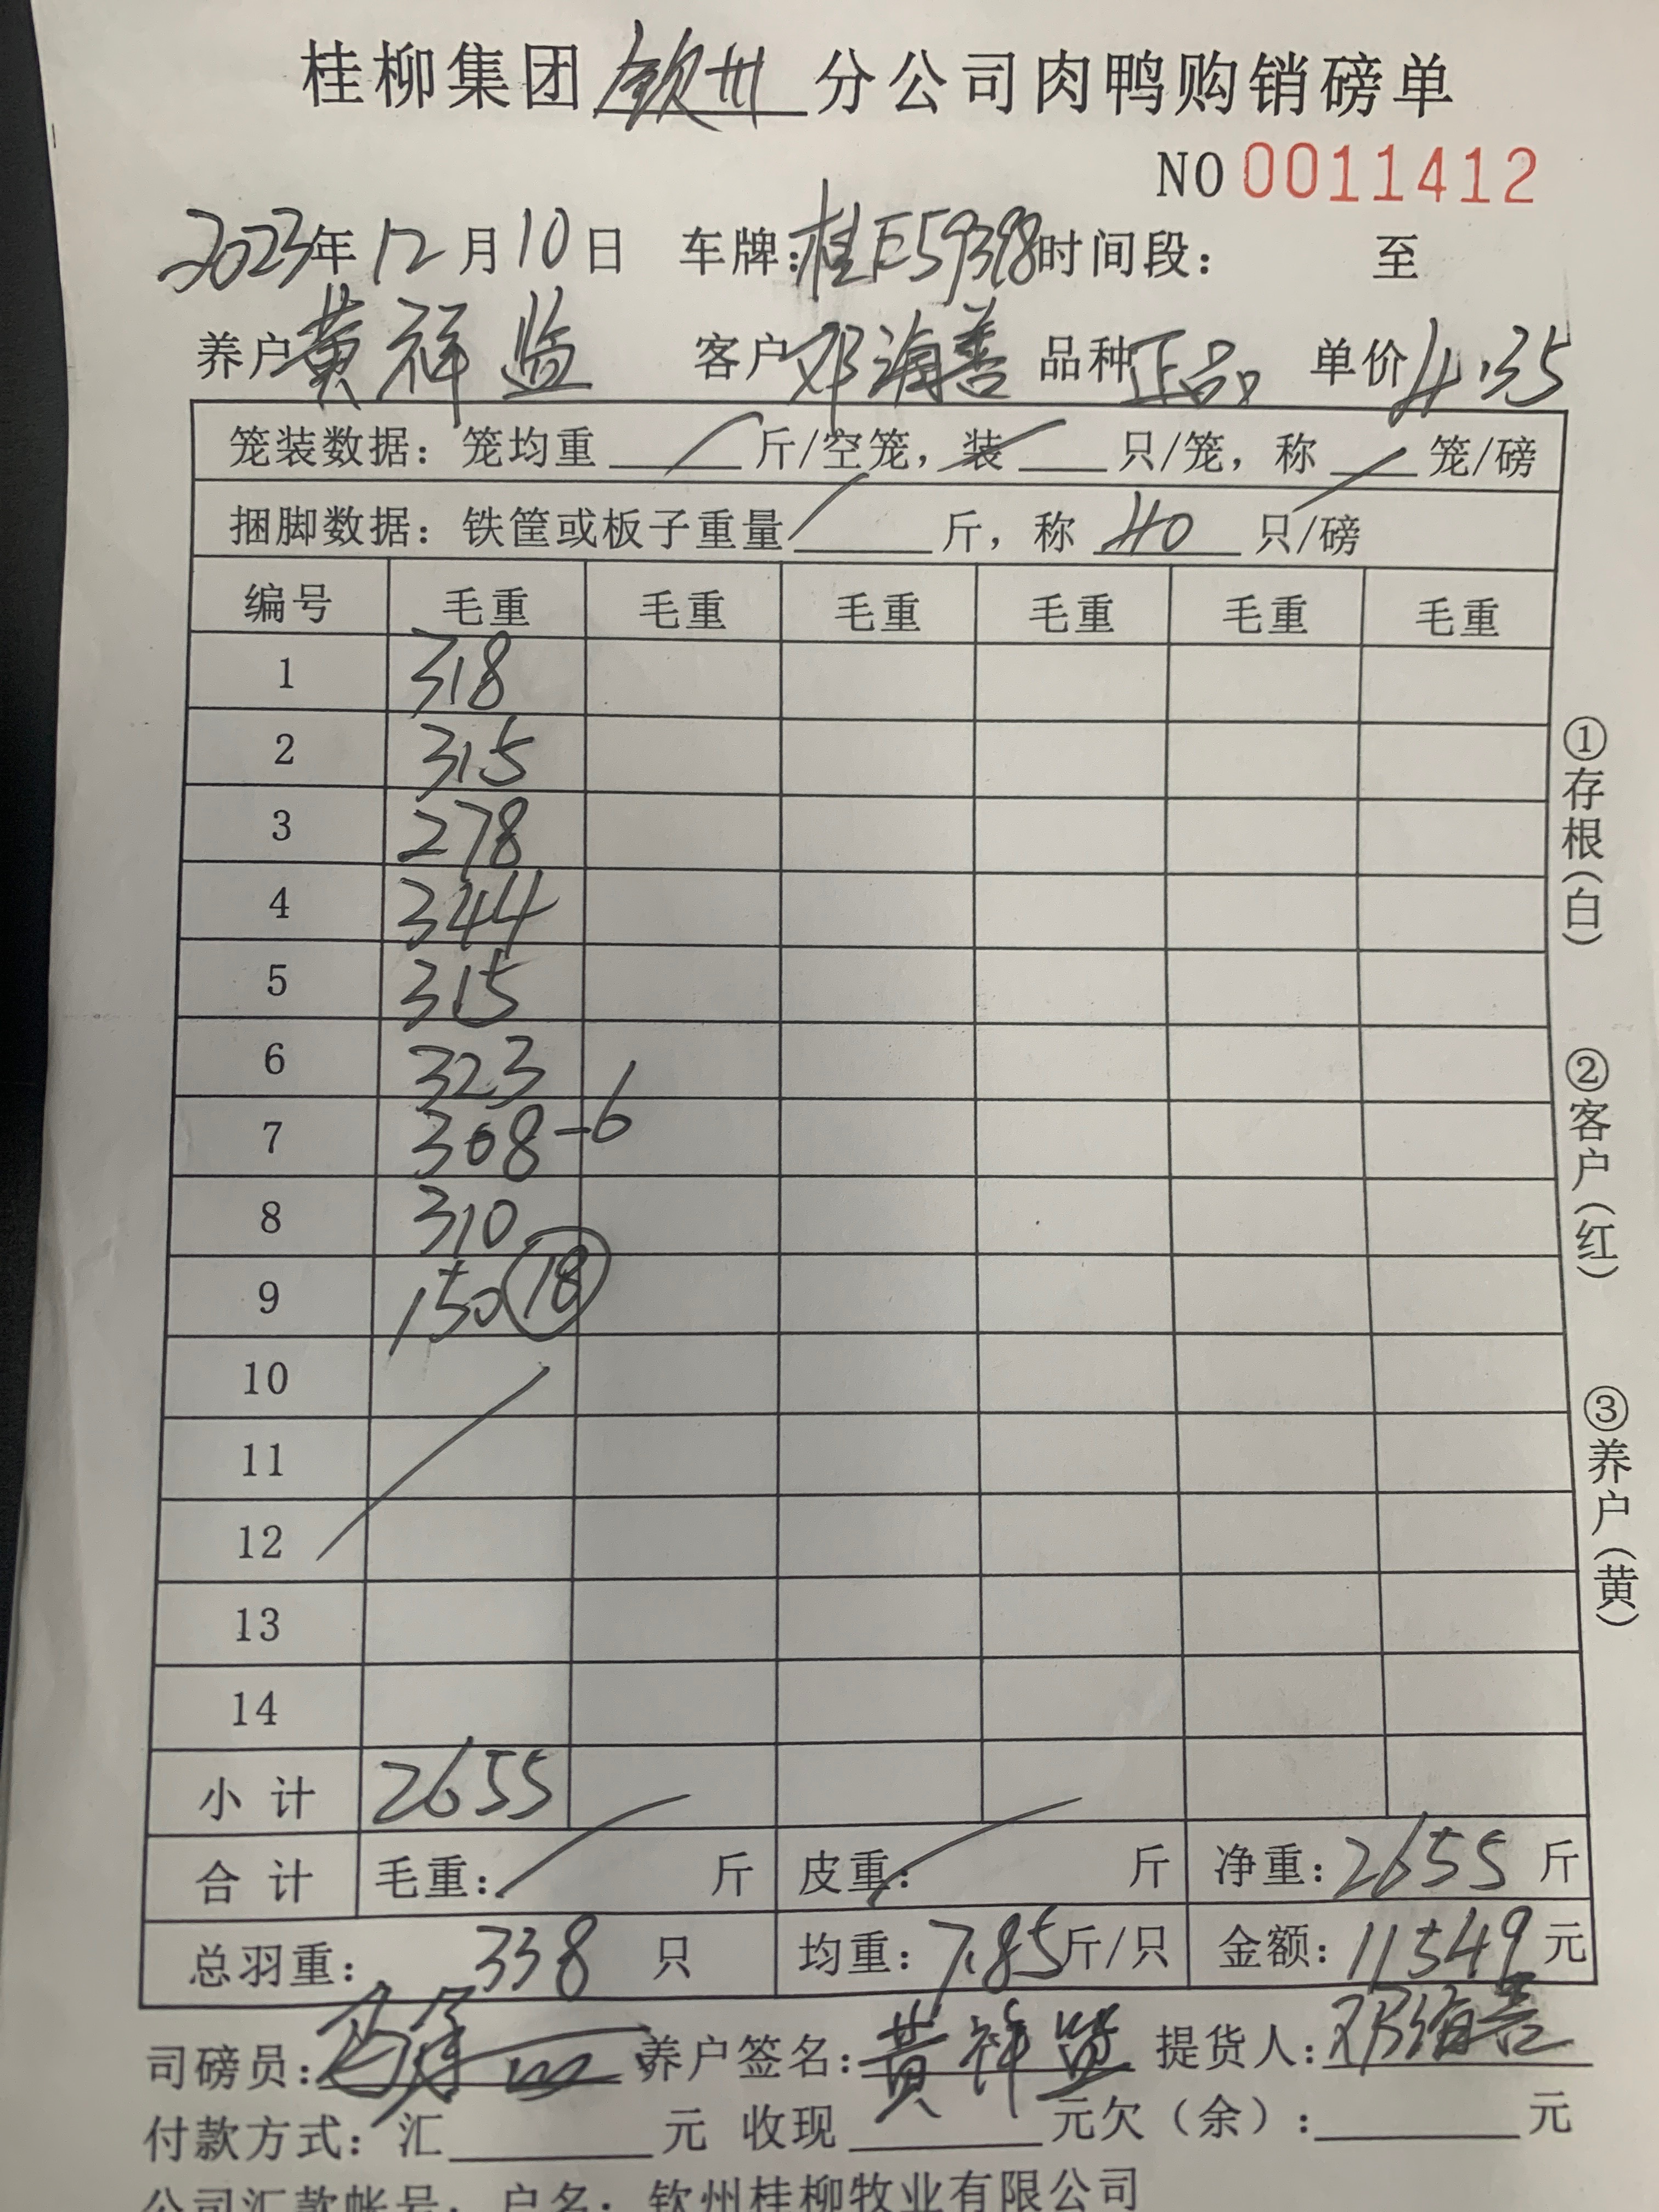 桂柳集团钦州分公司肉鸭购销磅单
NO 0011412
2023年12月10日 车牌：桂E59398时间段： 至
养户黄祥益 客户邓海善 品种正品 单价4.35
笼装数据：笼均重 斤/空笼，装 只/笼，称 笼/磅
捆脚数据：铁筐或板子重量 斤，称 40 只/磅
编号 毛重 毛重 毛重 毛重 毛重 毛重
1 318
2 315
3 278
4 344
5 315
6 323
7 308-6
8 310
9 150 18
10
11
12
13
14
小计 2655
合计 毛重： 斤 皮重： 斤 净重：2655斤
总羽重：338 只 均重：7.85斤/只 金额：11549元
司磅员： 养户签名：黄祥益 提货人：邓海善
付款方式：汇 元 收现 元欠（余）： 元
公司汇款帐号：户名：钦州桂柳牧业有限公司
①存根（白）
②客户（红）
③养户（黄）